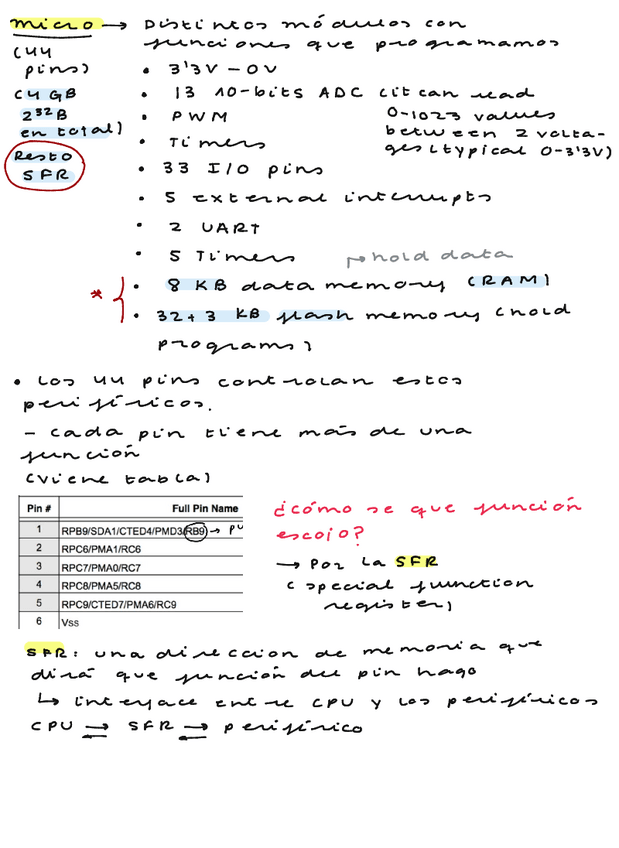 micro → Distintos módulos con
funciones que programamos
(44
pins)
(4 GB
2^32 B
en total)
Resto
SFR
• 3'3V - 0V
• 13 10-bits ADC (it can read
0-1023 values
between 2 volta-
ges (typical 0-3'3V)
• PWM
• Timers
• 33 I/O pins
• 5 external interrupts
• 2 UART
• 5 Timers
→ hold data
* { • 8 KB data memory (RAM)
• 32+3 KB flash memory (hold
programs)
• Los 44 pins controlan estos
periféricos.
- cada pin tiene más de una
función
(viene tabla)
Pin # Full Pin Name
1 RPB9/SDA1/CTED4/PMD3/RB9 → PU
2 RPC6/PMA1/RC6
3 RPC7/PMA0/RC7
4 RPC8/PMA5/RC8
5 RPC9/CTED7/PMA6/RC9
6 Vss
¿cómo se que función
escojo?
→ Por la SFR
(special function
register)
SFR: una direccion de memoria que
dirá que función del pin hago
↳ interface entre CPU y los periféricos
CPU → SFR → periférico